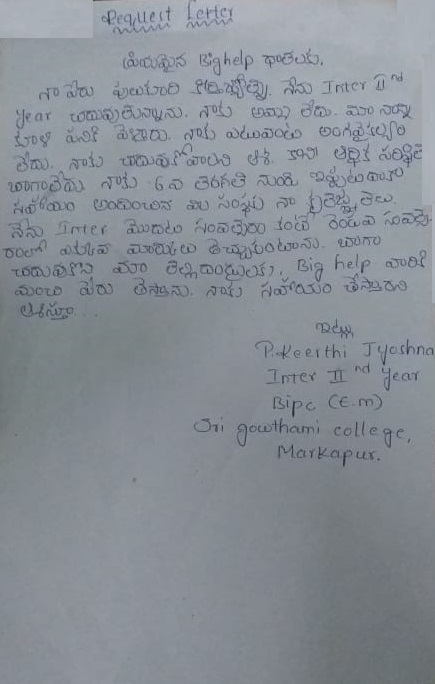 Request Letter
ప్రియమైన Bighelp దాతలకు,
నా పేరు పులుకూరి కీర్తిజ్యోత్స్న. నేను Inter II nd
Year చదువుతున్నాను. నాకు అమ్మ లేదు. మా నాన్న
కూలి పనికి వెళ్తారు. నాకు ఎటువంటి అంగవైకల్యం
లేదు. నాకు చదువుకోవాలని ఆశ. కాని ఆర్థిక పరిస్థితి
బాగాలేదు నాకు 6వ తరగతి నుండి ఇప్పటిదాకా
సహాయం అందించిన మీ సంస్థకు నా కృతజ్ఞతలు.
నేను Inter మొదటి సంవత్సరం కంటే రెండవ సంవత్స
రంలో ఎక్కువ మార్కులు తెచ్చుకుంటాను. బాగా
చదువుకొని మా తల్లిదండ్రులకు, Big help వారికి
మంచి పేరు తెస్తాను. నాకు సహాయం చేస్తారని
ఆశిస్తూ...
ఇట్లు
P.Keerthi Jyoshna
Inter II nd Year
Bipc (E.m)
Sri gowthami college,
Markapur.